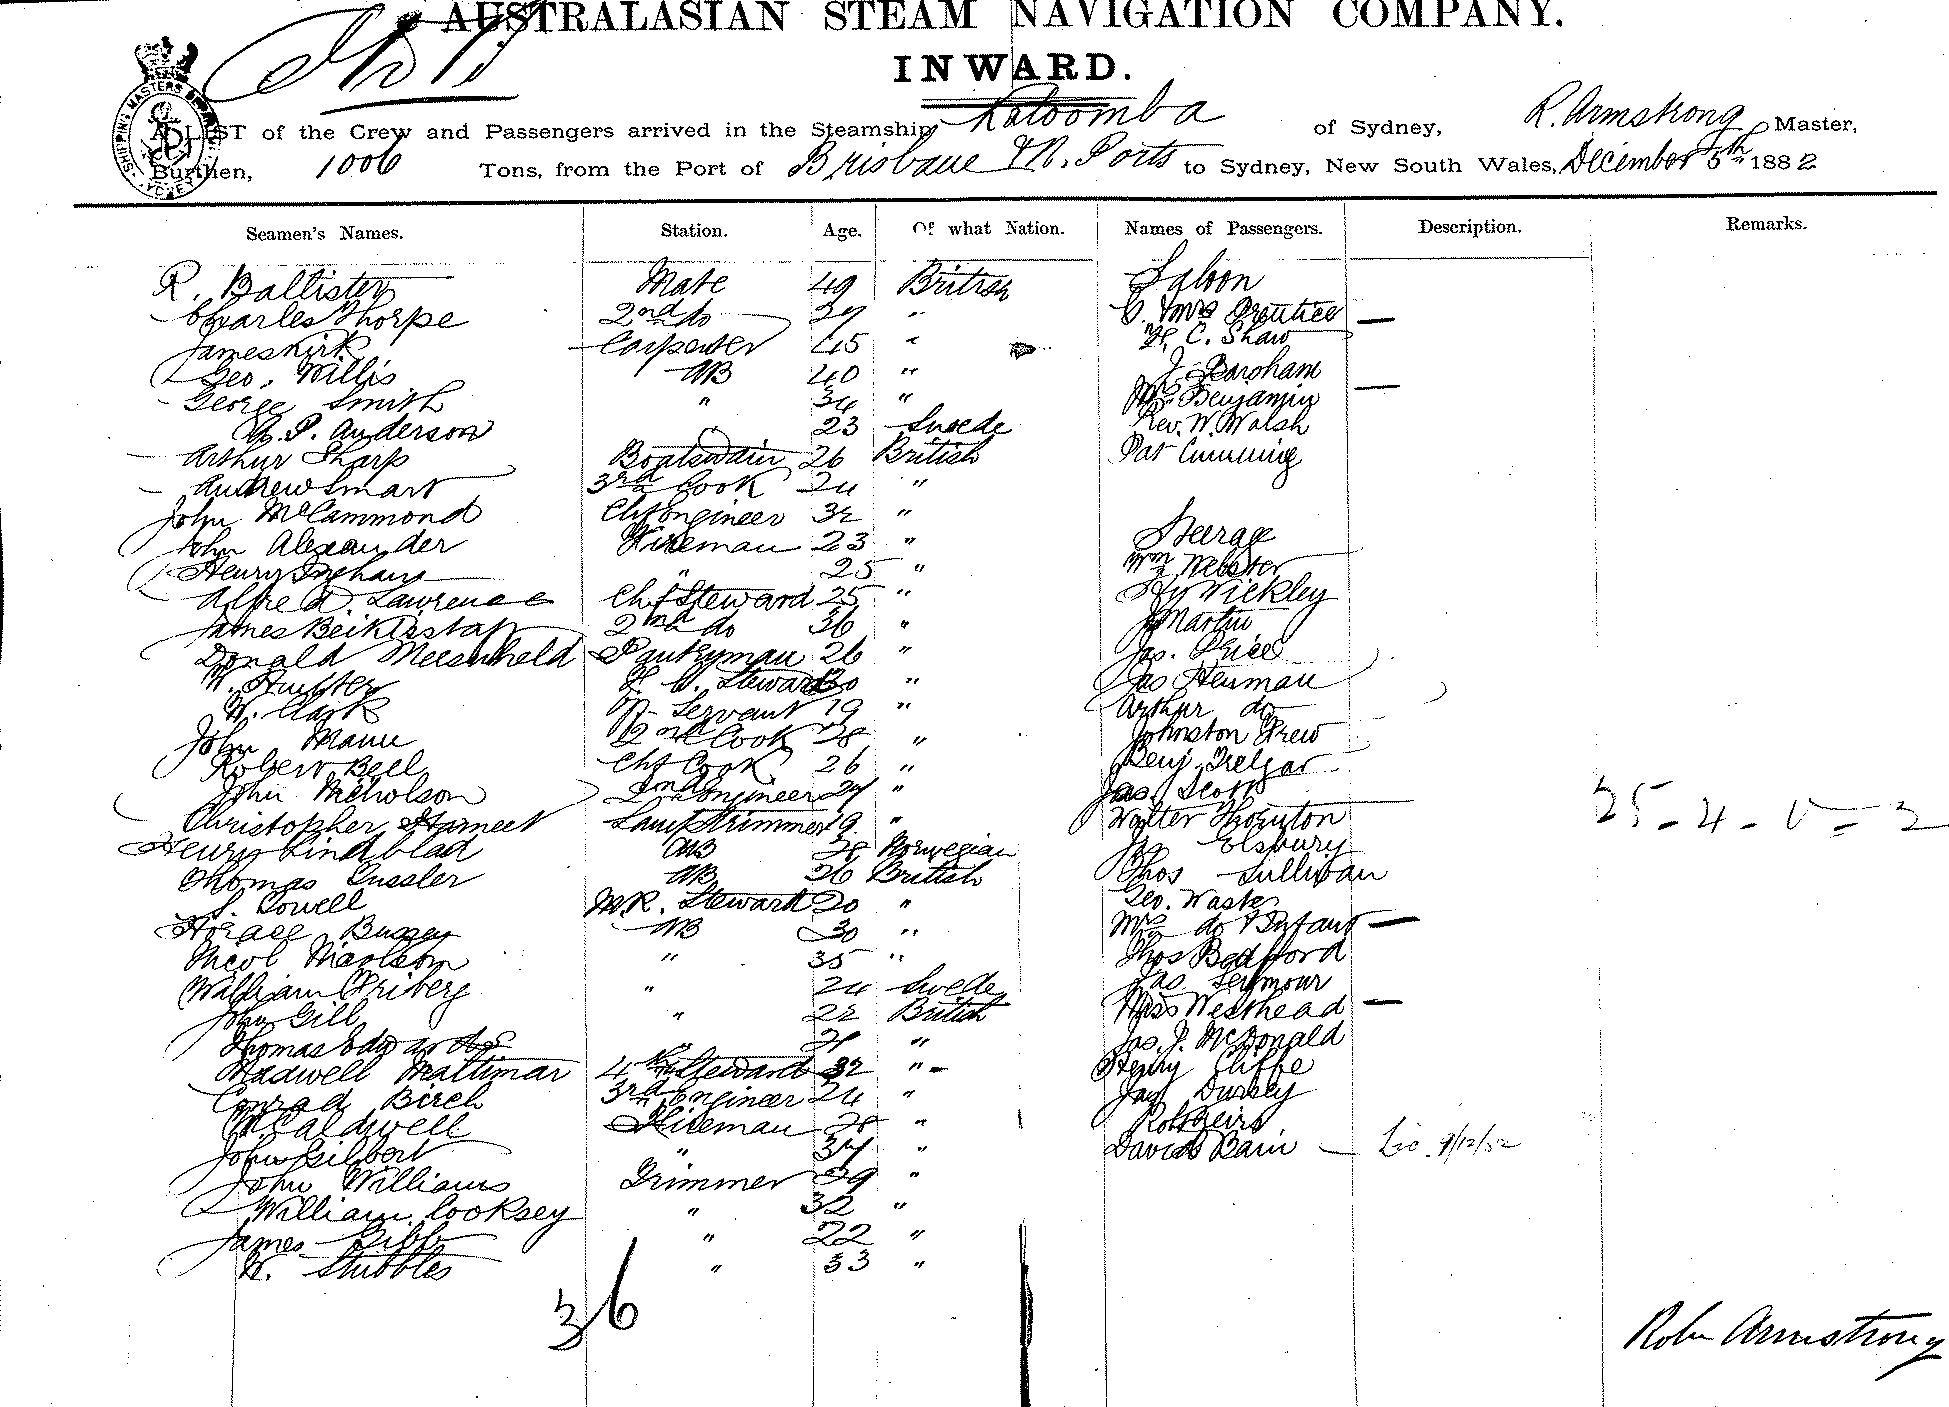 AUSTRALASIAN STEAM NAVIGATION COMPANY.
INWARD.
A LIST of the Crew and Passengers arrived in the Steamship Katoomba of Sydney, R. Armstrong Master,
Burthen, 1006 Tons, from the Port of Brisbane & N. Ports to Sydney, New South Wales, December 5th 1882
Seamen's Names. Station. Age. Of what Nation. Names of Passengers. Description. Remarks.
R. Ballister Mate 49 British Saloon
Charles Thorpe 2nd do 37 " C. & Mrs Prentice —
James Kirk Carpenter 45 " H. C. Shaw
Geo. Willis AB 40 " J. Barsham
George Smith " 34 " Mrs Benjamin —
A. P. Anderson 23 Swede Rev. W. Walsh
Arthur Sharp Boatswain 26 British Pat Cumming
Andrew Smart 3rd Cook 24 "
John McCammond Chf Engineer 32 "
John Alexander Fireman 23 " Steerage
Henry Ingham " 25 " Wm Webster
Alfred Lawrence Chf Steward 25 " Hy Vickley
James 2nd do 36 " J Martin
Donald Pantryman 26 " Jas. Price
W. Hunter F. C. Steward 30 " Jas Heuman
W. Clark Servant 19 " Arthur do
John Mann 2nd Cook 28 " Johnston Drew
Robert Bell Chf Cook 26 " Benj. Trelgar
John Nicholson 2nd Engineer 27 " Jas. Scott
Christopher Lamptrimmer 19 " Walter Thornton
Henry Lindblad AB 28 Norwegian Elsbury
Thomas Tussler AB 26 British Thos Sullivan
S. Powell M.R. Steward 20 " Geo. Waster
Horace Bussey AB 30 " Mrs do & Infant —
Nicol " 35 " Thos Bedfford
William Friberg " 24 Swede Jas Seymour
John Gill " 22 British Miss Westhead —
Thomas Edwards " " Jas. J. McDonald
Madwell Mattimar 4th Steward 32 " Henry Cliffe
Conrad Birch 3rd Engineer 24 " Jas Dussey
M Caldwell Fireman 28 "
John Gilbert " 37 " David Bain — 9/12/82
John Williams Trimmer 39 "
William Cooksey " 32 "
James Gibb " 22 "
W. Stubbles " 33 "
36
Robn Armstrong